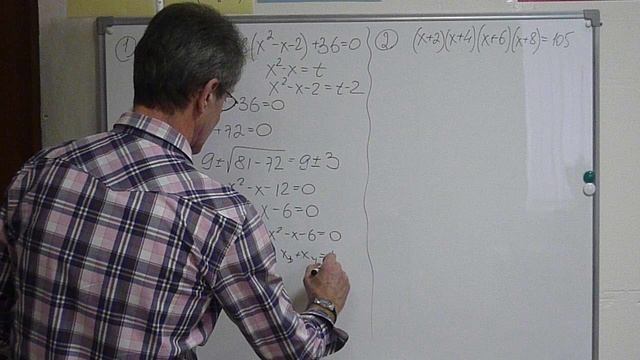 1 (x²-x-2)+36=0
x²-x=t
x²-x-2=t-2
36=0
+72=0
9±√81-72=9±3
x²-x-12=0
x-6=0
x²-x-6=0
x₃+x₄=
2 (x+2)(x+4)(x+6)(x+8)=105